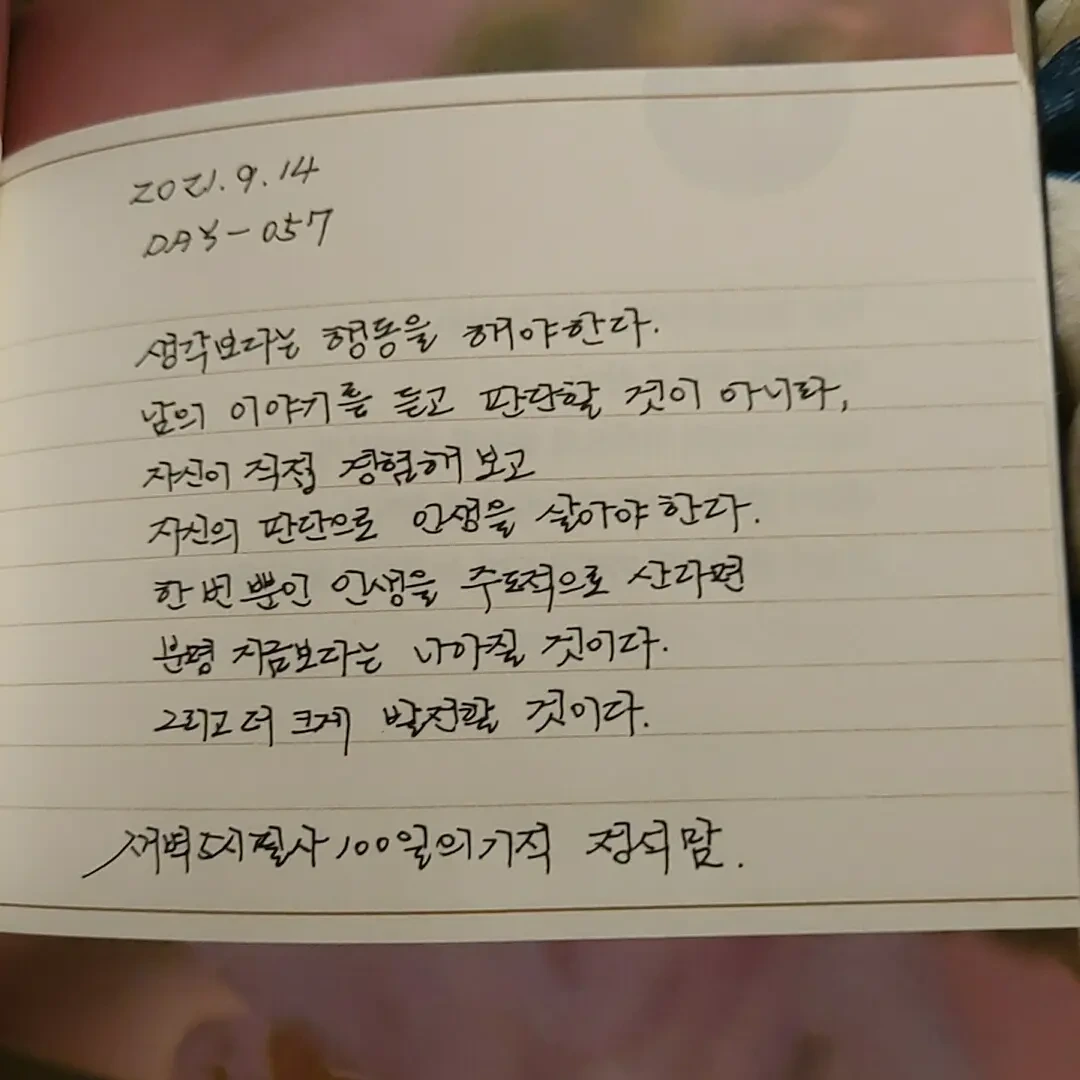 2021.9.14
DAY-057
생각보다는 행동을 해야한다.
남의 이야기를 듣고 판단할 것이 아니라,
자신이 직접 경험해 보고
자신의 판단으로 인생을 살아야 한다.
한 번 뿐인 인생을 주도적으로 산다면
분명 지금보다는 나아질 것이다.
그리고 더 크게 발전할 것이다.
새벽5시필사100일의기적 정석맘.